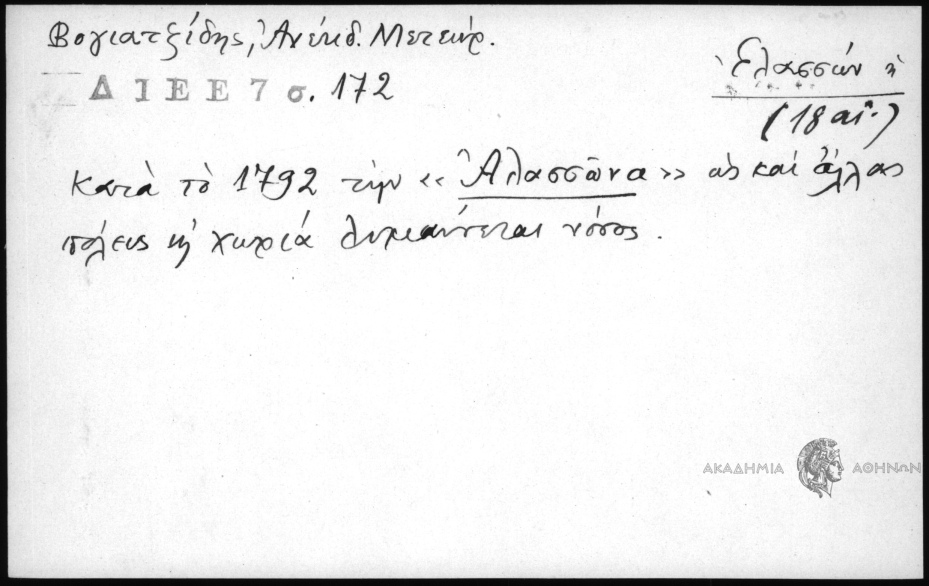 Βογιατζίδης, Ἀνέκδ. Μετεώρ.
Δ Ι Ε Ε 7 σ. 172
Ἐλασσών ἡ
(18 αἰ.)
Κατὰ τὸ 1792 τὴν « Ἀλασσῶνα » ὡς καὶ ἄλλας
πόλεις ἢ χωριά λυμαίνεται νόσος.
ΑΚΑΔΗΜΙΑ ΑΘΗΝΩΝ